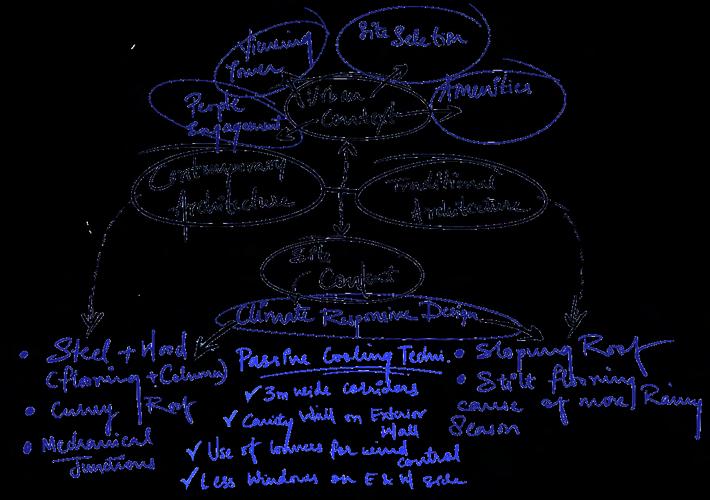 Viewing
Tower
Site Selection
People
Engagement
Urban
Context
Amenities
Contemporary
Architecture
Traditional
Architecture
Site
Context
Climate Responsive Design
• Steel + Wood
(flooring + Columns)
• Curvy Roof
• Mechanical
Junctions
Passive Cooling Techni.
✓ 3m wide corridors
✓ Cavity Wall on Exterior
Wall
✓ Use of louvres for wind
control
✓ Less Windows on E & W side
• Sloping Roof
• Stilt flooring
cause of more Rainy
Season